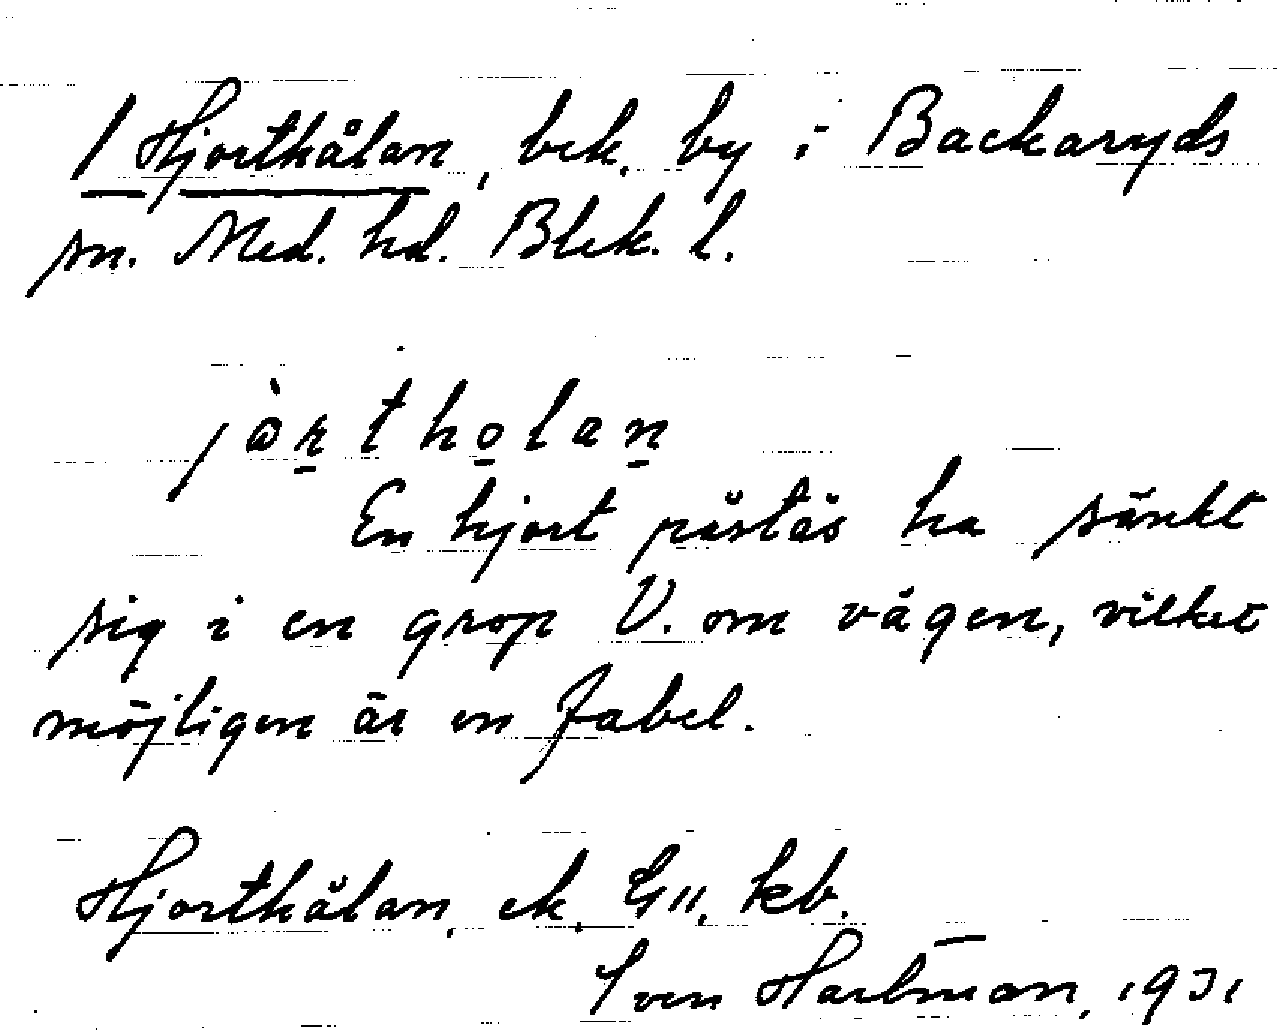 / Hjorthålan, bek. by i Backaryds
sn. Med. hd. Blek. l.
jàrtholan
En hjort påstås ha sänkt
sig i en grop V. om vägen, vilket
möjligen är en fabel.
Hjorthålan, ek. kb.
Sven Hartman, 1931